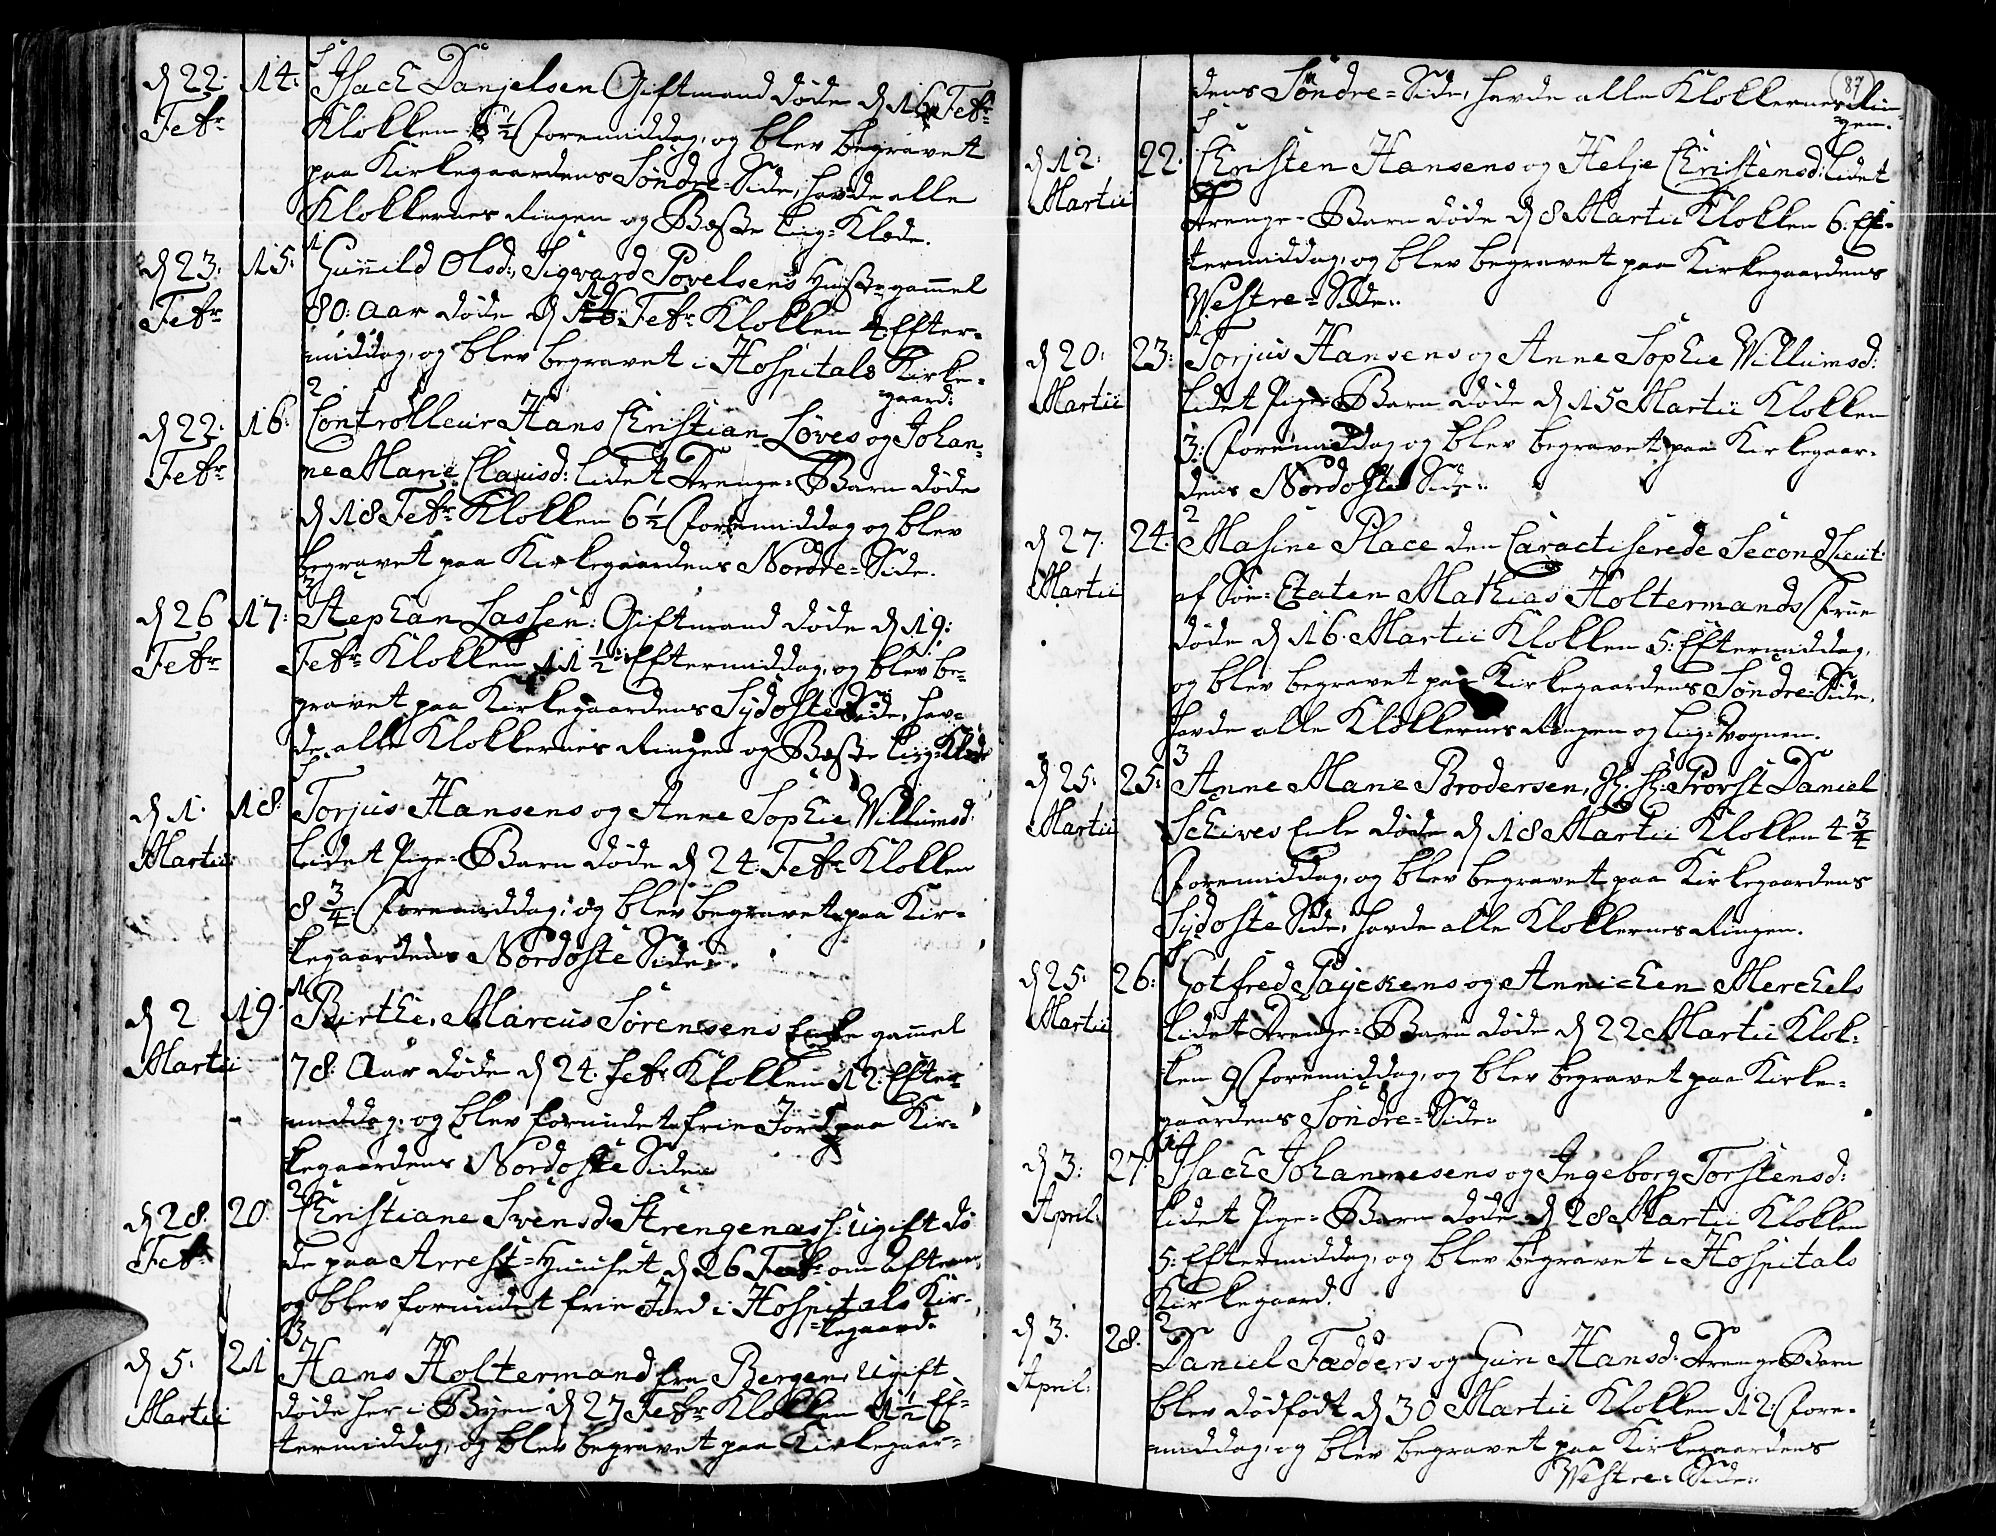 d 22: 14: Isach Danjelsen Giftmand døde d 16 Febr:
Febr Klokken 6½ Foremiddag, og blev begravet
paa Kirkegaardens Søndre-Side, havde alle
Klokkernes Ringen og Beste Liig-Klæde.
d 23: 15: Gunnild Olsd:, Sigvard Povelsens gammel
Febr 80: Aar døde d 19 Febr Klokken 4: Efter-
middag, og blev begravet i Hospitals Kirke-
gaard:
d 22: 16: Controlleur Hans Christian Loves og Johan-
Febr ne Marie Clausd: lidet Drenge-Barn døde
d 18 Febr Klokken 6½ Foremiddag og blev
begravet paa Kirkegaardens Nordre-Side.
d 26 17: Stephan Lassen: Giftmand døde d 19:
Febr Febr Klokken 11½: Eftermiddag, og blev be-
gravet paa Kirkegaardens Sydoste Side, hav-
de alle Klokkernes Ringen og Beste Liig-Klæde
d 1: 18: Torjus Hansens og Anne Sophie Willumsd:
Martii lidet Pige-Barn døde d 24: Febr Klokken
8¾: Foremiddag, og blev begravet paa Kir-
kegaardens Nordoste Side.
d 2 19: Birthe, Marcus Sørensens Enke gammel
Martii 78: Aar døde d 24: Febr Klokken 12: Efter-
middag, og blev forundet frie Jord paa Kir-
kegaardens Nordoste Side.
d 28: 20: Christiane Svensd: ugift dø
Febr de paa Arrest-Huuset d 26 Febr om Aftenen
og blev forundet frie Jord i Hospitals Kir-
kegaard.
d 5: 21 Hans Holtermand fra Bergen, Ugift
Martii døde her i Byen d 27 Febr Klokken 1½ Ef-
termiddag, og blev begravet paa Kirkegaar-
87
dens Søndre-Side, havde alle Klokkernes Rin-
gen.
d 12: 22: Christen Hansens og Helje Christensd: lidet
Martii Drenge-Barn døde d 8 Martii Klokken 6: Ef-
termiddag, og blev begravet paa Kirkegaardens
Westre-Side.
d 20: 23: Torjus Hansens og Anne Sophie Willumsd:
Martii lidet Pige-Barn døde d 15 Martii Klokken
3: Foremiddag og blev begravet paa Kirkegaar-
dens Nordoste Side.
d 27: 24: Masine Place den Caractiserede Second Lieut:
Martii af Søe-Etaten Mathias Holtermands Frue
døde d 16 Martii Klokken 5: Eftermiddag,
og blev begravet paa Kirkegaardens Søndre-Side,
havde alle Klokkernes Ringen og Liig-Vognen.
d 25: 25: Anne Marie Brodersen, Provst Daniel
Martii Schives Enke døde d 18 Martii Klokken 4¾
Foremiddag, og blev begravet paa Kirkegaardens
Sydoste Side, havde alle Klokkernes Ringen.
d 25: 26: Gotfred Payckens og Annichen Merchels
Martii lidet Drenge-Barn døde d 22 Martii Klok-
ken 9 Foremiddag, og blev begravet paa Kirke-
gaardens Søndre-Side.
d 3: 27: Isach Johannesens og Ingeborg Torstensd:
April: lidet Pige-Barn døde d 28 Martii Klokken
5: Eftermiddag, og blev begravet i Hospitals
Kirkegaard.
d 3: 28: Daniel Fadders og Gun Hansd: Drenge Barn
April: blev dødfødt d 30 Martii Klokken 12: Fore-
middag, og blev begravet paa Kirkegaardens
Westre-Side.